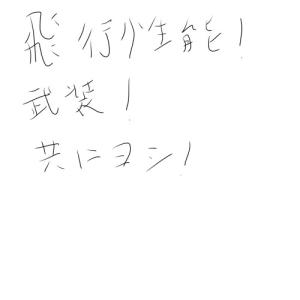 飛行性能!
武装!
共にヨシ!